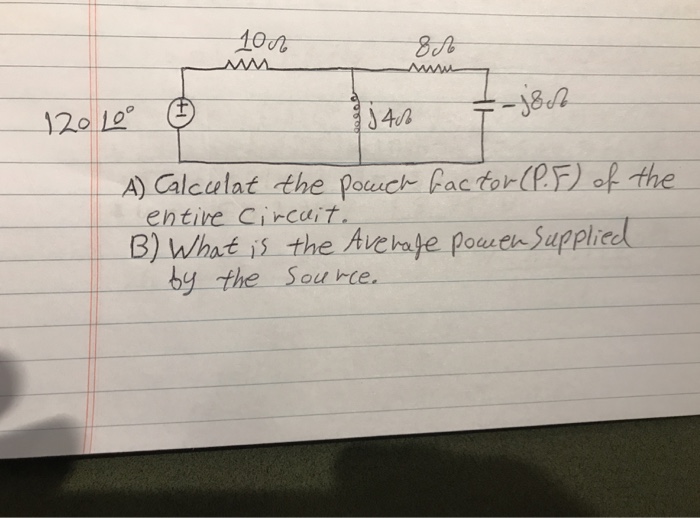 10Ω 8Ω
120 ∠0° j4Ω -j8Ω
A) Calculat the power factor (P.F) of the
entire Circuit.
B) What is the Average power Supplied
by the Source.